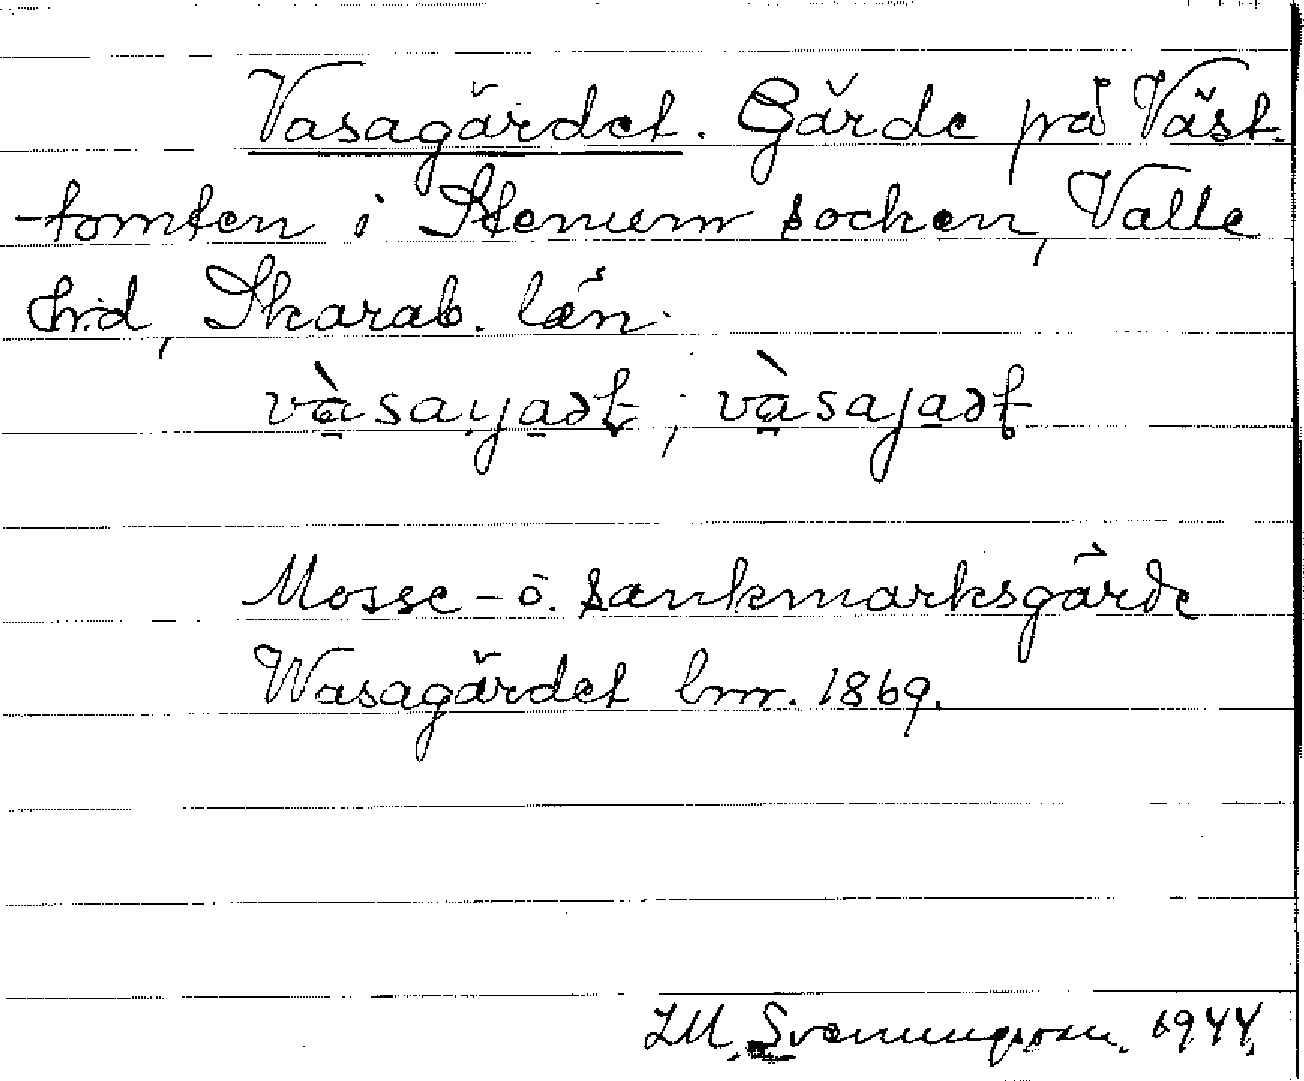 Vasagärdet. Gärde på Väst-
-tomten i Stenum socken, Valle
hrd, Skarab. län.
và̱saya̱ət; và̱saja̱ət
Mosse- o. sankmarksgärde
Wasagärdet lmr. 1869.
I.M. Svenungsson. 1944.